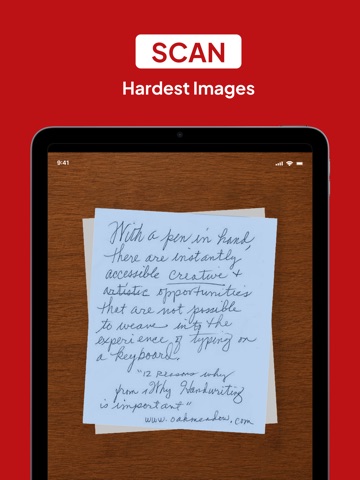 SCAN
Hardest Images
9:41
With a pen in hand,
there are instantly
accessible creative +
artistic opportunities
that are not possible
to weave into the
experience of typing on
a keyboard.
"12 Reasons why
from : Why Handwriting
is important"
www.oakmeadow.com